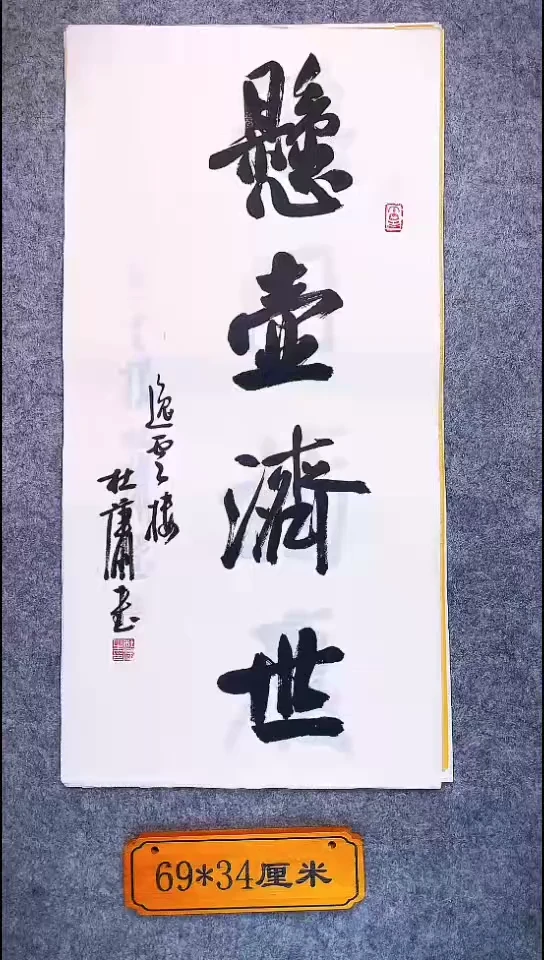 懸壺濟世
逸雲樓
杜庸書
69*34厘米